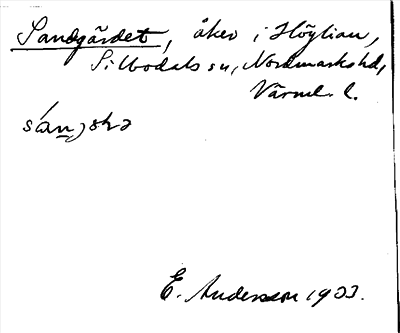 Sandgärdet, åker i Höglian,
Silbodals sn, Nordmarks hd,
Värml. l.
E. Andersson 1933.